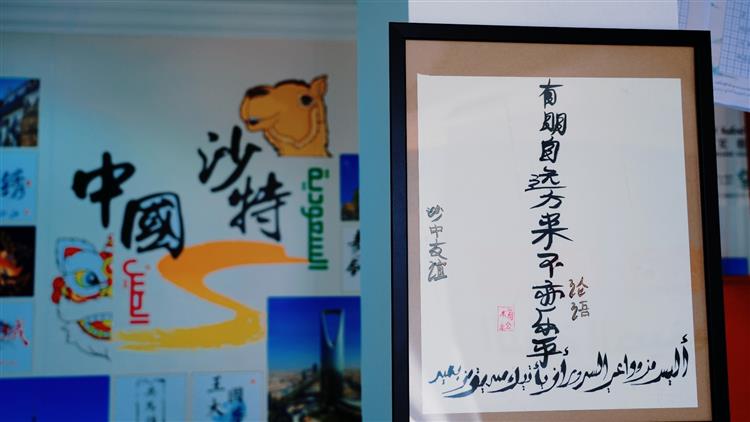 中國
沙特
السعودية
الصين
绣
城
有朋自远方来不亦乐乎
论语
沙中友谊
أليس من دواعي السرور أن يأتيك صديق من بعيد